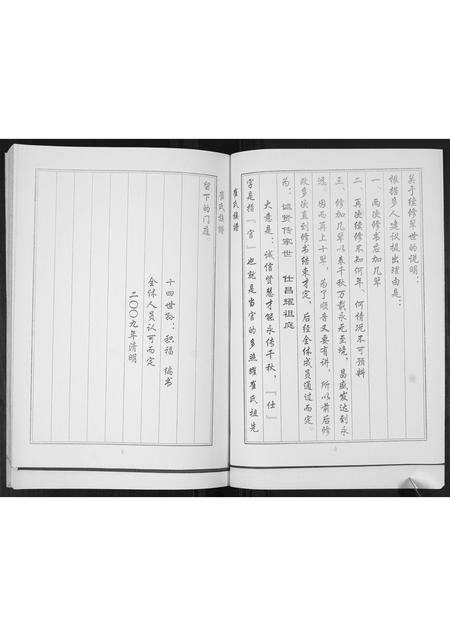 关于续修辈世的说明：
根据多人建议提出理由是：
一、两次修书应加几辈
二、再次续修不知何年、何情况不可预料
三、修加几辈以表千秋万载永无至境，昌盛发达到永
远。因而再上十辈，为了顺音又要有讲，所以前后修
改多次直到修书结束才定。后经全体成员通过而定。
为：诚贤传家世 仕昌耀祖庭
大意是：诚信贤慧才能永传千秋，『仕』
字是指『官』也就是当官的多照耀崔氏祖先
崔氏族谱
崔氏族谱
留下的门庭
十四世孙：积福 编书
全体人员认可而定
二〇〇九年清明